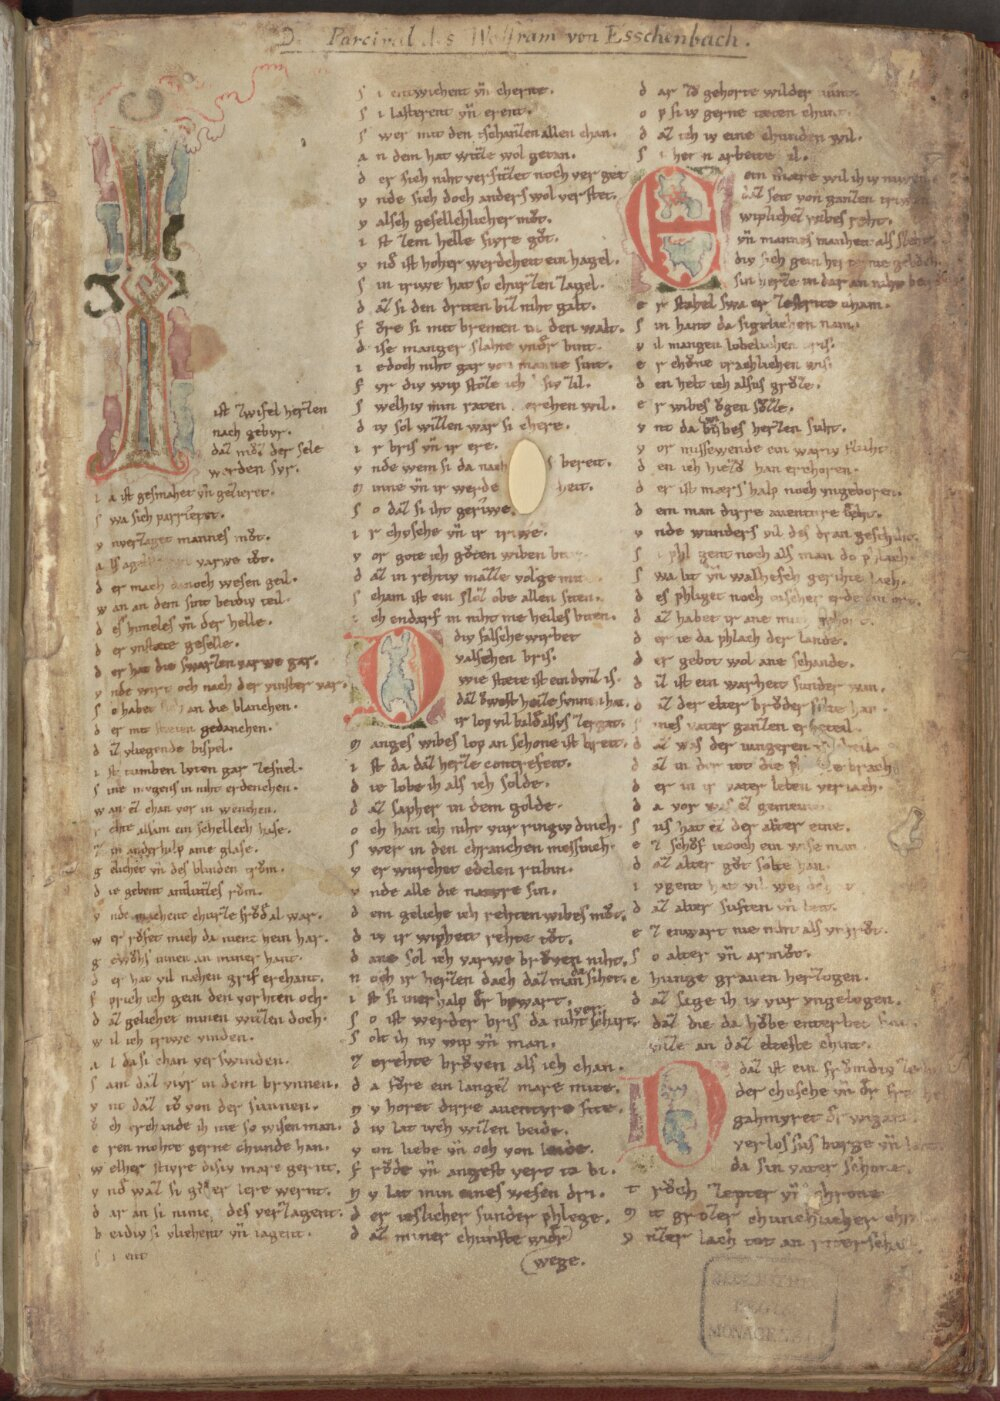 D Parcival des Wolfram von Esschenbach.
ist zwifel herzen
nach gebvr.
daz mvͦz der sele
werden svr.
i a ist gesmahet vn̄ gezieret.
s wa sich parrieret.
v nverzaget mannes mvͦt.
a ls varwe tvͦt.
d er mach dannoch wesen geil.
w an an dem sint beidiv teil.
d es himeles vn̄ der helle.
d er vnstæte geselle.
d er hat die swarzen varwe gar.
v nde wirt och nach der vinster var.
s o habet an die blanchen.
d er mit stæten gedanchen.
d iz vliegende bispel.
i st tumben lvten gar zesnel.
s ine mvgens in niht erdenchen.
w an ez chan vor in wenchen.
r ehte alsam ein schellech hase.
z in anderhalp ame glase.
g elichet vn̄ des blinden trǒm.
d ie gebent antlvtzes rǒm.
v nde machent churze frǒde al war.
w er rǒfet mich da niene hein har.
g ewǒhs innen an miner hant.
d er hat vil nahen grif erchant.
s prich ich gein den vorhten och.
d az gelichet minen wizzen doch.
w il ich triwe vinden.
a l da si chan verswinden.
s am daz viur in dem brvnnen.
v nt daz tǒ von der sunnen.
ǒ ch erchande ih nie so wisen man.
e ren mohte gerne chunde han.
w elher stivre disiv mære gernt.
v nd waz si gǒter lere wernt.
d ar an si nime des verzagent.
b eidiv si vliehent vn̄ iagent.
s i ent
s i entwichent vn̄ cherne.
s i lasterent vn̄ erent.
s wer mit den schanzen allen chan.
a n dem hat witze wol getan.
d er sich niht versitzet noch verget
v nde sich doch anders wol verstet.
v alsch gesellechlicher mvͦt.
i st zem helle fivre gvͦt.
v nd ist hoher werdecheit ein hagel.
s in triwe hat so churzen zagel.
d az si den dritten biz niht galt.
f ǒre si mit bremen in den walt.
d ise manger slahte vnder bint.
i edoch niht gar von manne sint.
f vr div wip stoze ich disiv zil.
s welhiv min raten merchen wil.
d iv sol wizzen war si chere.
i r bris vn̄ ir ere.
v nde wem si da nach bereit.
m inne vn̄ ir werde heit.
s o daz si iht geriwe.
i r chvsche vn̄ ir triwe.
v or gote ich gǒten wiben
d az in rehtiv mazze volge mite
s cham ist ein sloz obe allen siten.
i ch endarf in niht me heiles biten.
div valsche wirbet
valschen bris.
wie stæte ist ein dvnez is.
daz ǒwest heize svnnen hat.
ir lop vil balde alsvs zergat.
m anges wibes lop an schone ist breit.
i st da daz herze conterfeit.
d ie lobe ih als ich solde.
d az sapher in dem golde.
o ch han ich niht vur ringiv dinch.
s wer in den chranchen messinch.
v er wurchet edelen rubin.
v nde alle die natvre sin.
d em geliche ich rehten wibes mvͦt.
d iv ir wipheit rehte tvͦt.
d ane sol ich varwe brǒven niht.
n och ir herzen dach daz man da siht.
i st si innerhalp der brvst bewart.
s o ist werder bris da niht verschart.
s olt ih nv wip vn̄ man.
z erehte brǒven als ich chan.
d a fǒre ein langez mære mite.
n v horet dirre aventvre site.
d iv lat iveh wizzen beide.
v on liebe vn̄ och von leide.
f rǒde vn̄ angest vert ta bi.
n v lat min eines wesen dri.
d er ieslicher sunder phlege.
d az miner chunste wider
wege.
d ar zǒ gehorte wilder
o p si iv gerne tæten chunt.
d az ich iv eine chunden wil.
s i heten arbeite vil.
ein mære wil ih iv niwen
daz seit von ganzen triwen
wiplichez wibes reht.
vn̄ mannes manheit als sleht.
div sich gein herte nie gebovch
sin herze in dar an niht be
e r stahel swa er zestrite cham.
s in hant da sigelichen nam.
v il mangen lobelichen bris.
e r chǒne trachlichen wis.
d en helt ich alsus grǒze.
e r wibes ǒgen sǒze.
v nt da bi wibes herzen suht.
v or missewende ein wariv fluht.
d en ich hiezǒ han erchoren.
d er ist mærs halp noch vngeboren.
d em man dirre aventvre giht.
v nde wunders vil des dran geschiht.
s i phlegent noch als man do phlach.
s wa lit vn̄ walhesch gerihte lach.
d es phliget noch tivscher erde ein ort.
d az habet ir ane mich gehort.
d er ie da phlach der lande.
d er gebot wol ane schande.
d iz ist ein warheit sunder wan.
d az der elter brǒder solte han
s ines vater ganzen erbeteil.
d az was der iungeren vnheil.
d az in der tot die phliht brach
d er in ir vater leben veriach.
d a vor was ez gemeine.
s us hat ez der alter eine.
e z schǒf iedoch ein wise man.
d az alter gǒt solte han.
i vgent hat vil werdecheit
d az alter suften vn̄ leit.
e z enwart nie niht als vnfrǒt.
s o alter vn̄ armǒt.
e hunge graven herzogen.
d az sage ih iv vur vngelogen.
daz die da hǒbe enterbet sin
vnze an daz elteste chint.
daz ist ein frǒmdiv
der chusche vn̄ der
gahmvret der wigant
verlos sus burge vn̄ lant
da sin vater schone.
t rǒch zepter vn̄ chrone
m it grozer chunechlicher
v nzer lach tot an riterschaft.
BIBLIOTHECA
REGIA
MONACENSIS